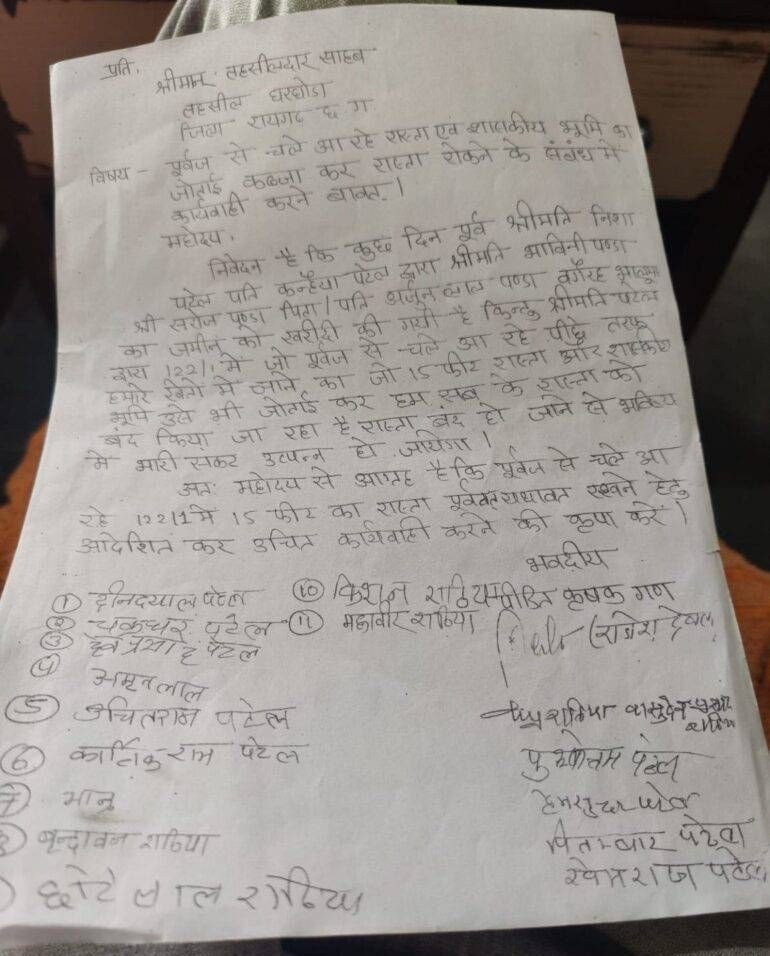 प्रति,
श्रीमान् तहसीलदार साहब
तहसील घरघोडा
जिला रायगढ़ छ ग
विषय - पूर्वज से चले आ रहे रास्ता एवं शासकीय भूमि का
जोताई कब्जा कर रास्ता रोकने के संबंध में
कार्यवाही करने बाबत्।
महोदय,
निवेदन है कि कुछ दिन पूर्व श्रीमति निशा
पटेल पति कन्हैया पटेल द्वारा श्रीमति भाविनी पण्डा
श्री सरोज पण्डा पिता/पति अर्जुन लाल पण्डा वगैरह
का जमीन को खरीदी की गयी है किन्तु श्रीमति पटेल
द्वारा 122/1 मे जो पूर्वज से चले आ रहे पीछे तरफ
हमारे खेतो मे जाने का जो 15 फीट रास्ता और शासकीय
भूमि उसे भी जोताई कर हम सब के रास्ता को
बंद किया जा रहा है रास्ता बंद हो जाने से भविष्य
मे भारी संकट उत्पन्न हो जायेगा।
अतः महोदय से आग्रह है कि पूर्वज से चले आ
रहे 122/1 मे 15 फीट का रास्ता पूर्ववत यथावत रखने हेतु
आदेशित कर उचित कार्यवाही करने की कृपा करें।
भवदीय
① दीनदयाल पटेल ⑩ किशन राठिया पीडित कृषक गण
② चक्रधर पटेल ⑪ महावीर राठिया
③ पटेल (राजेश
④ अमृत लाल
⑤ उचितराम पटेल राठिया वासुदेव राठिया
⑥ कार्तिक राम पटेल पुरुषोत्तम पटेल
7 भानु
वृन्दावन राठिया पिताम्बर पटेल
छोटे लाल राठिया खेमराज पटेल